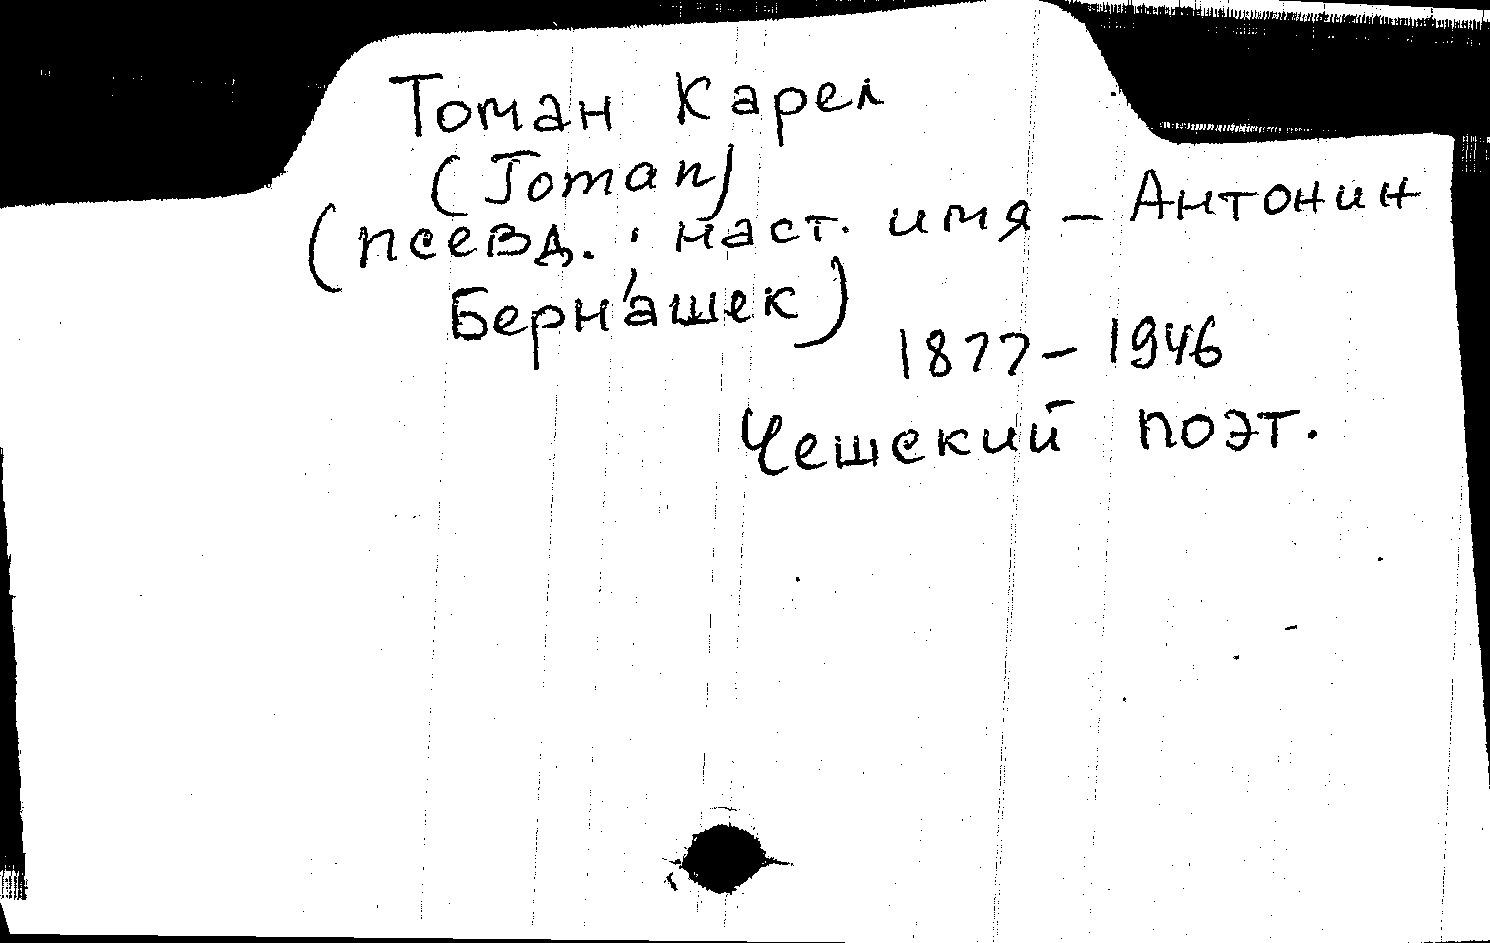 Томан Карел
(Toman)
(псевд.; наст. имя – Антонин
Бернашек)
1877 – 1946
Чешский поэт.